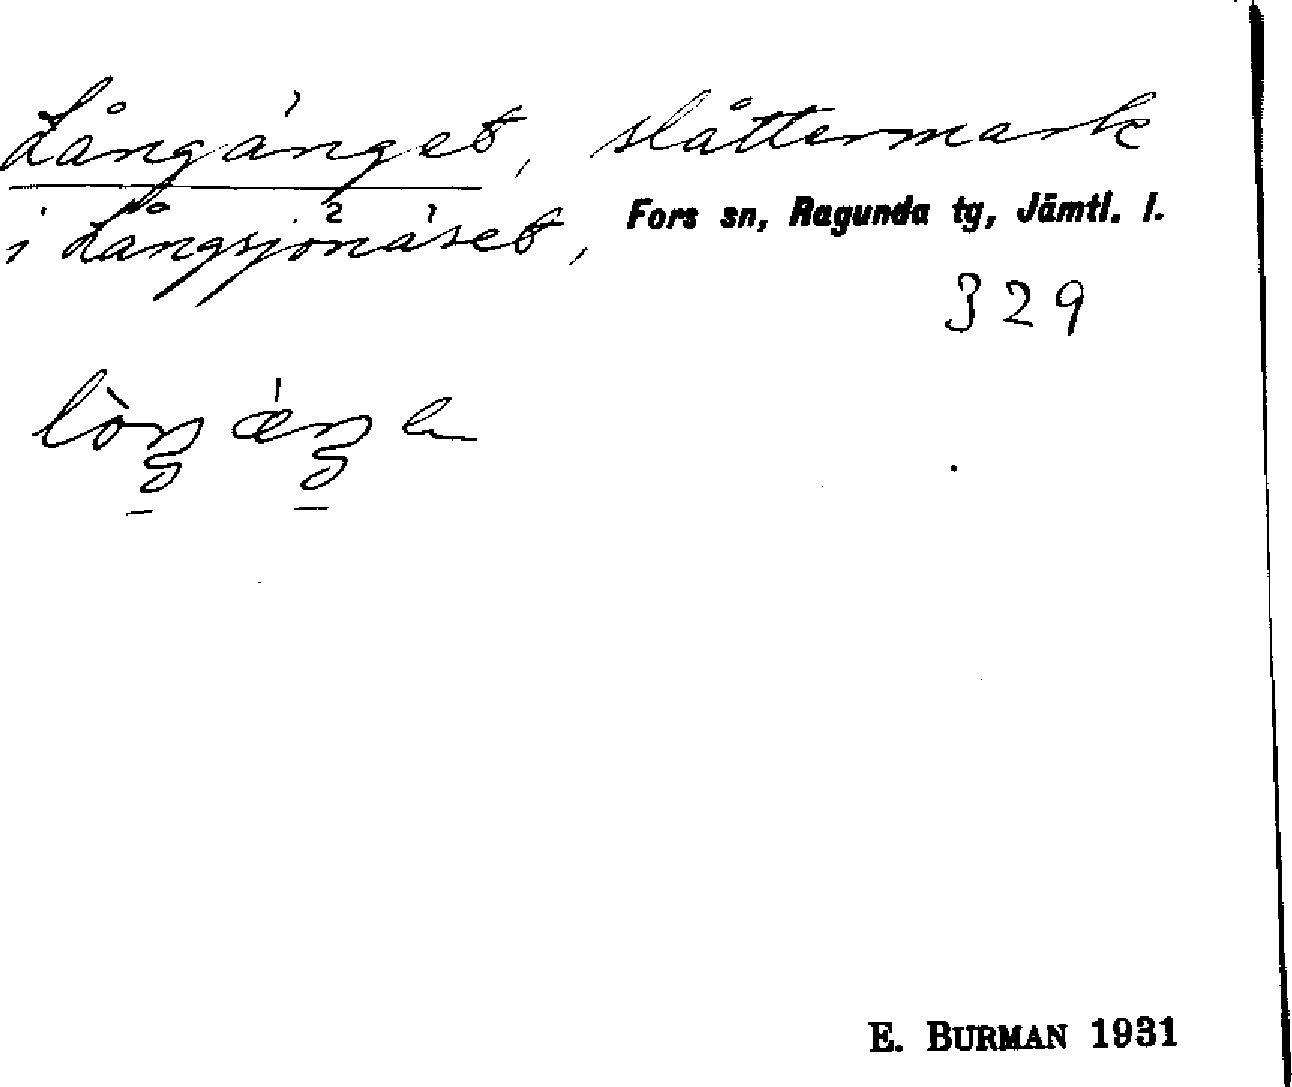 Långänget, slåttermark
i Långsjönäset, Fors sn, Ragunda tg, Jämtl. l.
329
E. BURMAN 1931